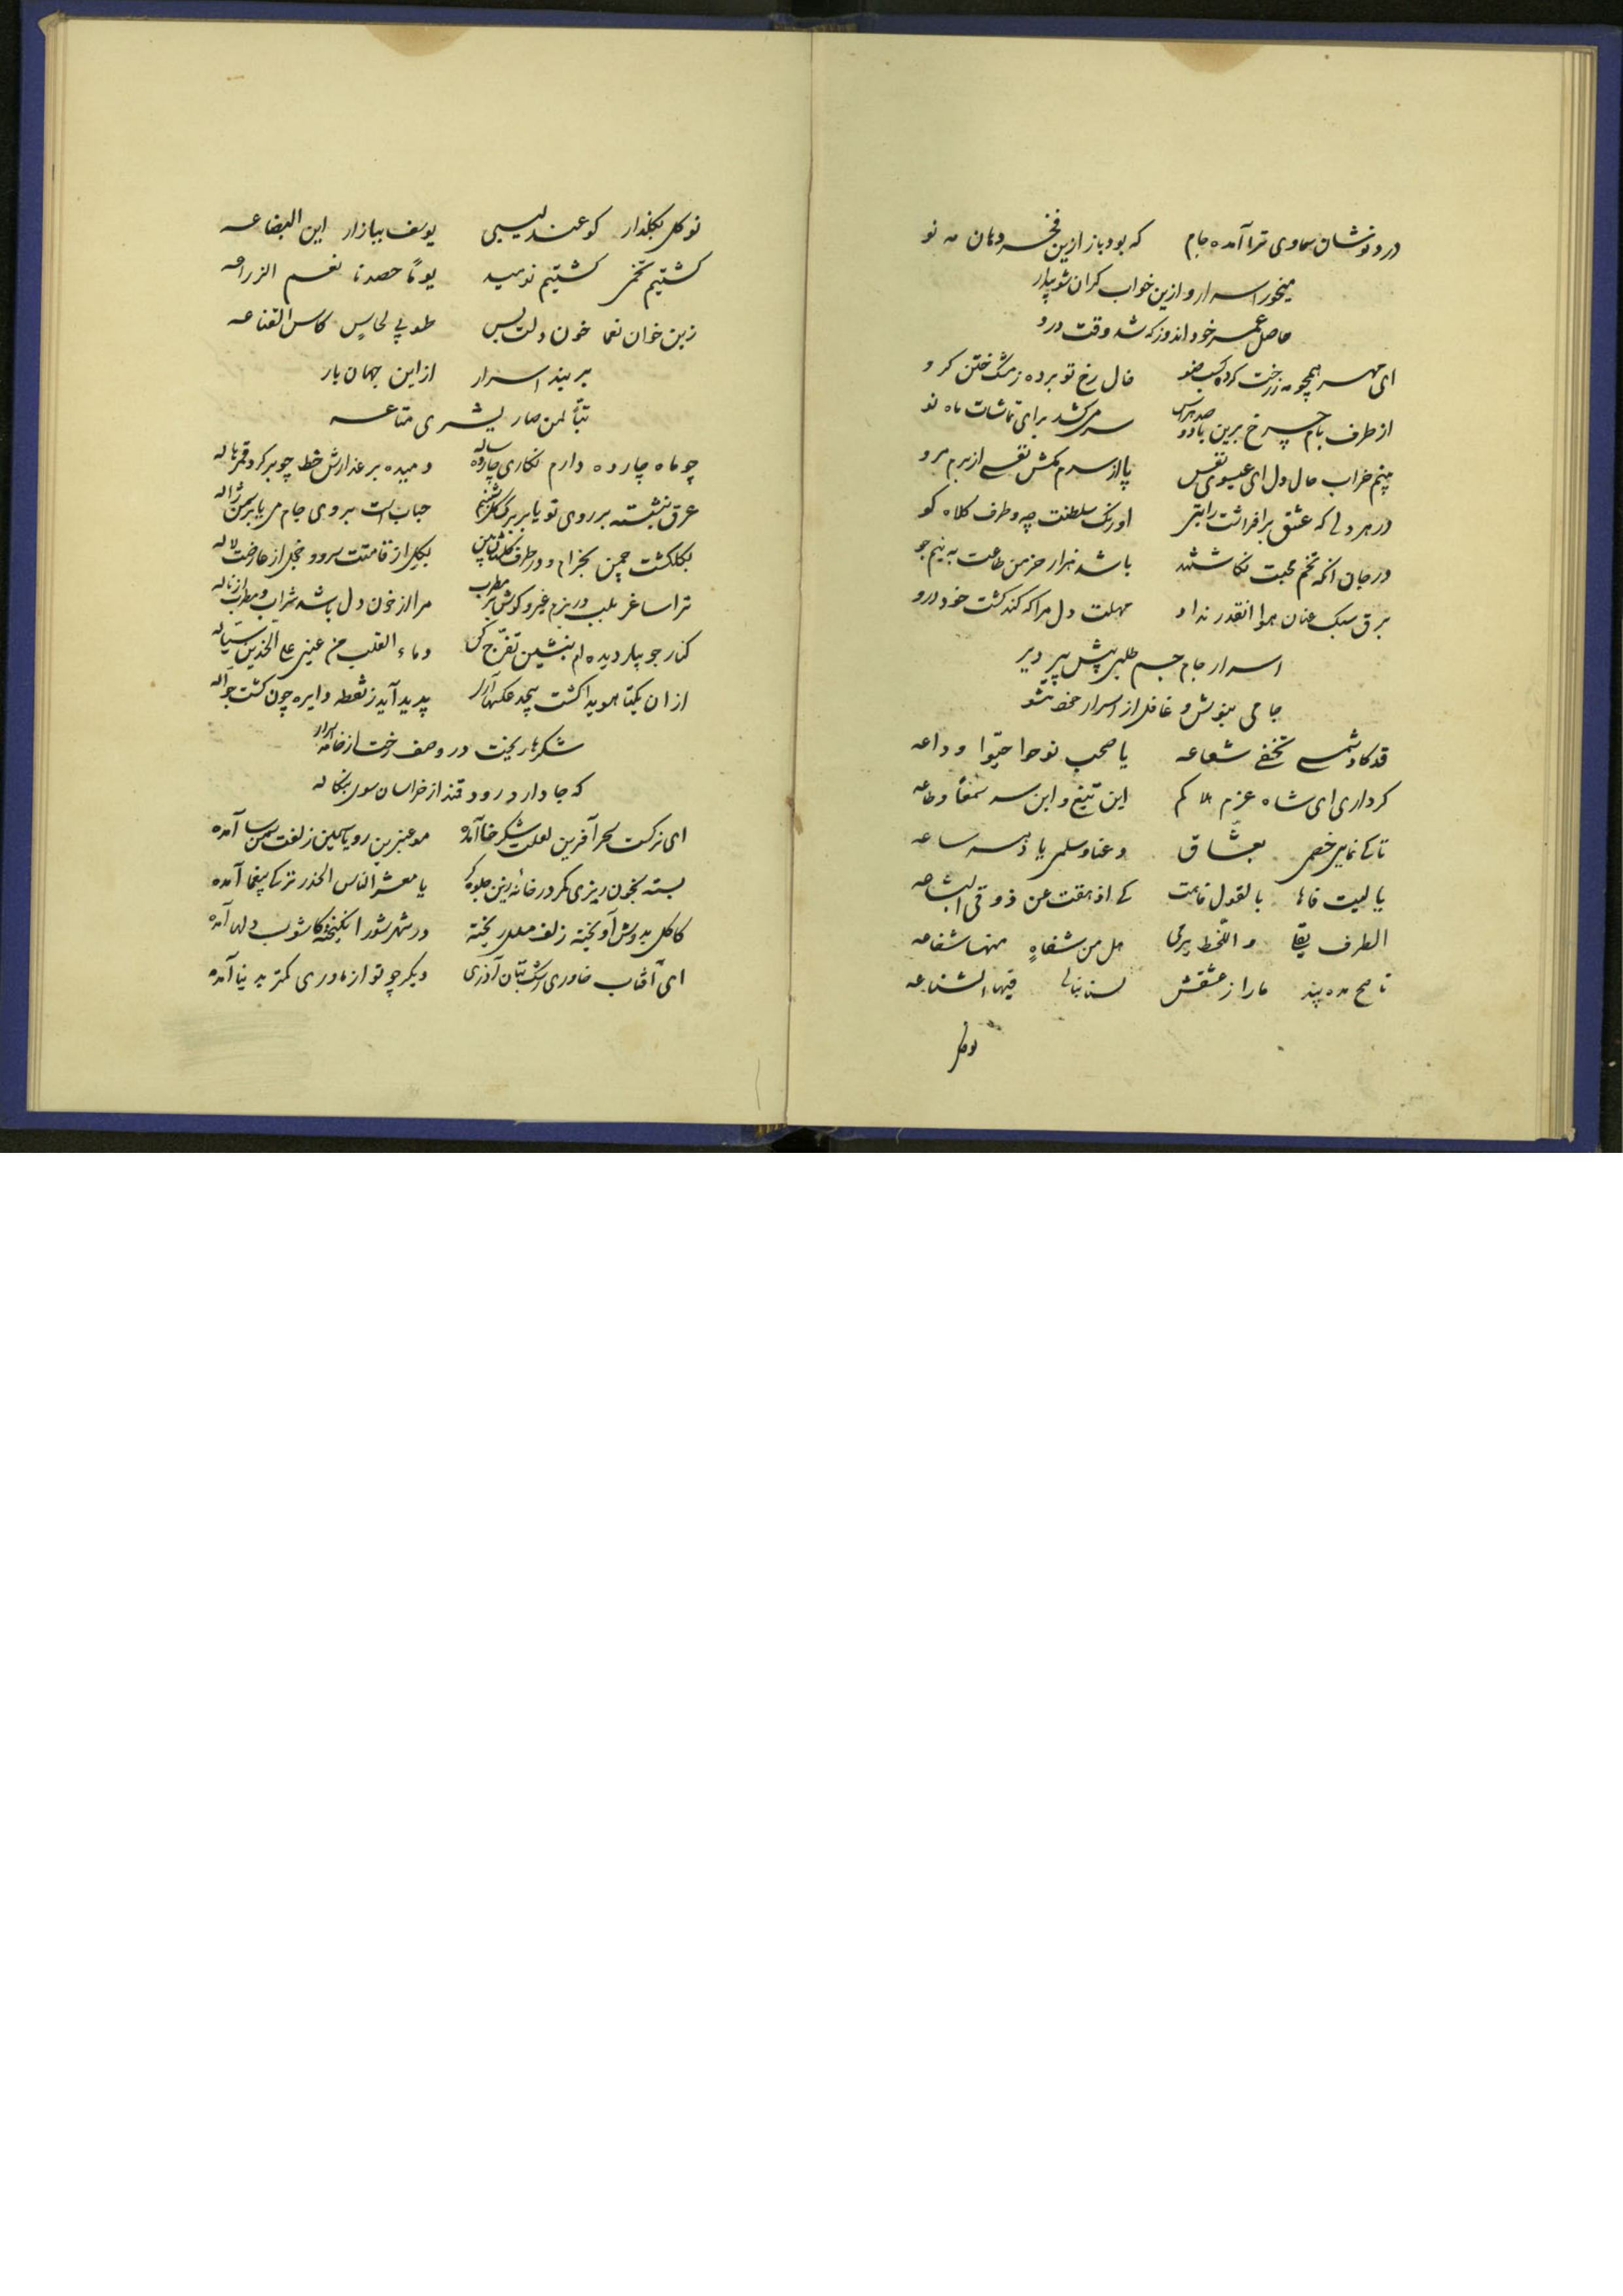 درد نوشان سماوی ترا آمده جام که بود باز ازین فخر دهان مه نو
میخور اسرار و ازین خواب کران شو بیدار
حاصل عمر خود اندوز که شد وقت درو
ای مهر همچو مه ز رخت کرده کسب ضو خال رخ تو برده ز مشک ختن کرو
از طرف بام چرخ برین با دو صد هراس سر می‌کشد برای تماشات ماه نو
بینم خراب حال دل ای عیسوی نفس پا از سرم مکش نفسی از برم مرو
در هر دلی که عشق برافراشت رایتی اورنک سلطنت چه و طرف کلاه کو
در جان انکه تخم محبت نکاشتند باشد هزار خرمن طاعت به نیم جو
برق سبک عنان هوا انقدر نداد مهلت دل مرا که کند کشت خود درو
اسرار جام جم طلبی پیش پیر دیر
جامی بنوش و غافل از اسرار خود مشو
قد کاد شمسی تخفی شعاعه یا صحب نوحوا حیّوا وداعه
کرداری ای شاه عزم هلاکم این تیغ و این سر سمعًا و طاعه
تا کی نمایی خصمی بعشاق دعنا و سلمی یا دهر ساعه
یا لیت فاها بالقول فاهت کی اذهقت عن ذوقی البشاعه
الطرف یقا و اللّحظ یرمی هل من شفاهٍ منها شفاعه
ناصح مده پند ما را ز عشقش لسنا نبالی فیها الشناعه
نو کل
نو کل بکلذار کو عندلیبی یوسف ببازار این البضاعه
کشتیم تخمی کشتیم نومید یومًا حصدنا نعم الزراعه
زین خوان نعما خون دلت بس طوبی لحاسٍ کاس القناعه
بر بند اسرار از این جهان بار
تبّاً لمن صار یشری متاعه
چو ماه چارده دارم نکاری چارده ساله دمیده بر عذارش خط چو بر کرد قمر هاله
عرق بنشسته بر روی تو یا بر برک کل شبنم حباب است بر روی جام می یا بر سمن ژاله
بکلکشت چمن بخرام و در طرف کلستان بین بکل از قامتت سرو و خجل از عارضت لاله
ترا ساغر بلب در بزم غیر و کوش بر مطرب مرا از خون دل باشد شراب و مطرب از ناله
کنار جویبار دیده‌ام بنشین تفرّج کن دماء القلب من عینی علی الخدین سیّاله
از ان یکتا هویدا کشت بیحد عکسها آری پدید آید ز نقطه دایره چون کشت جوّاله
شکرها ریخت در وصف رخت از خامه اسرار
که جا دارد رود قند از خراسان سوی بنکاله
ای نرکست سحر آفرین لعلت شکر خا آمده مو عنبرین رو یاسمین زلفت سمن سا آمده
بسته بخون ریزی کمر در خانه زین جلوه‌کر یا معشر الناس الحذر ترکی بیغما آمده
کاکل بدوش آویخته زلف مسلسل ریخته در شهر شور انکیخته کاشوب دلها آمده
ای آفتاب خاوری رشک بتان آذری دیکر چو تو از مادری کمتر بدنیا آمده